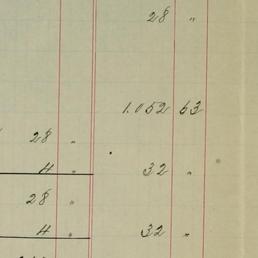 28 "
1.052 63
28 "
4 " 32 "
28 "
4 " 32 "